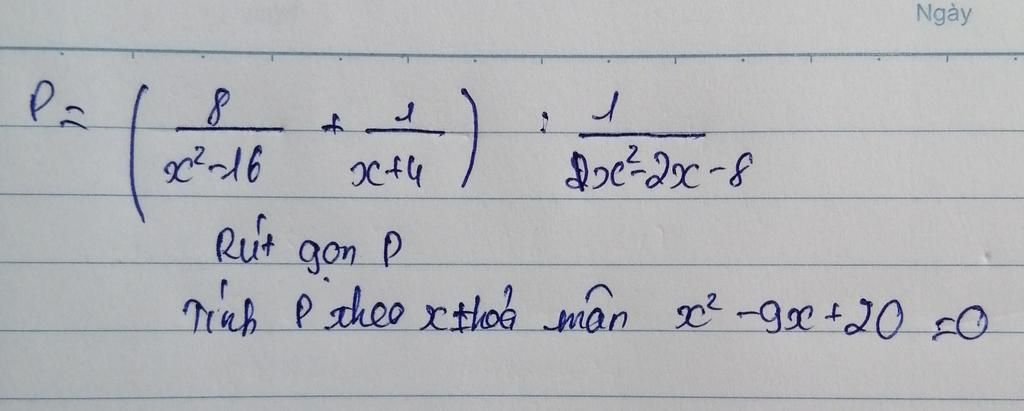 Ngày
P = ( 8/(x² - 16) + 1/(x + 4) ) : 1/(x² - 2x - 8)
Rút gọn P
Tính P theo x thoả mãn x² - 9x + 20 = 0